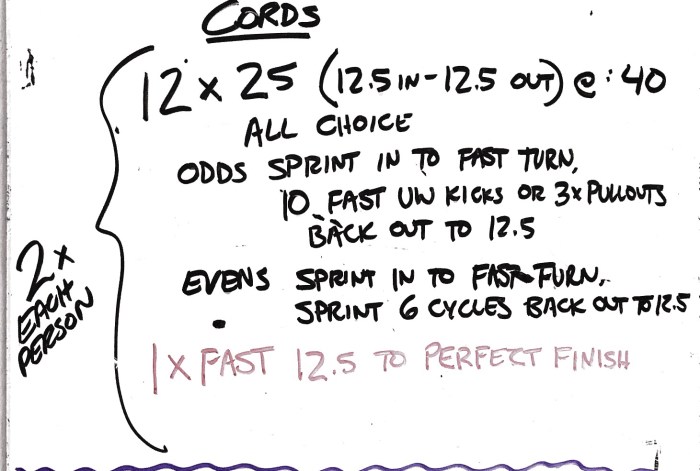 CORDS
12 x 25 (12.5 IN - 12.5 OUT) @ :40
ALL CHOICE
ODDS SPRINT IN TO FAST TURN,
10 FAST UW KICKS OR 3x PULLOUTS
BACK OUT TO 12.5
2x
EACH
PERSON
EVENS SPRINT IN TO FAST TURN,
SPRINT 6 CYCLES BACK OUT TO 12.5
1 x FAST 12.5 TO PERFECT FINISH